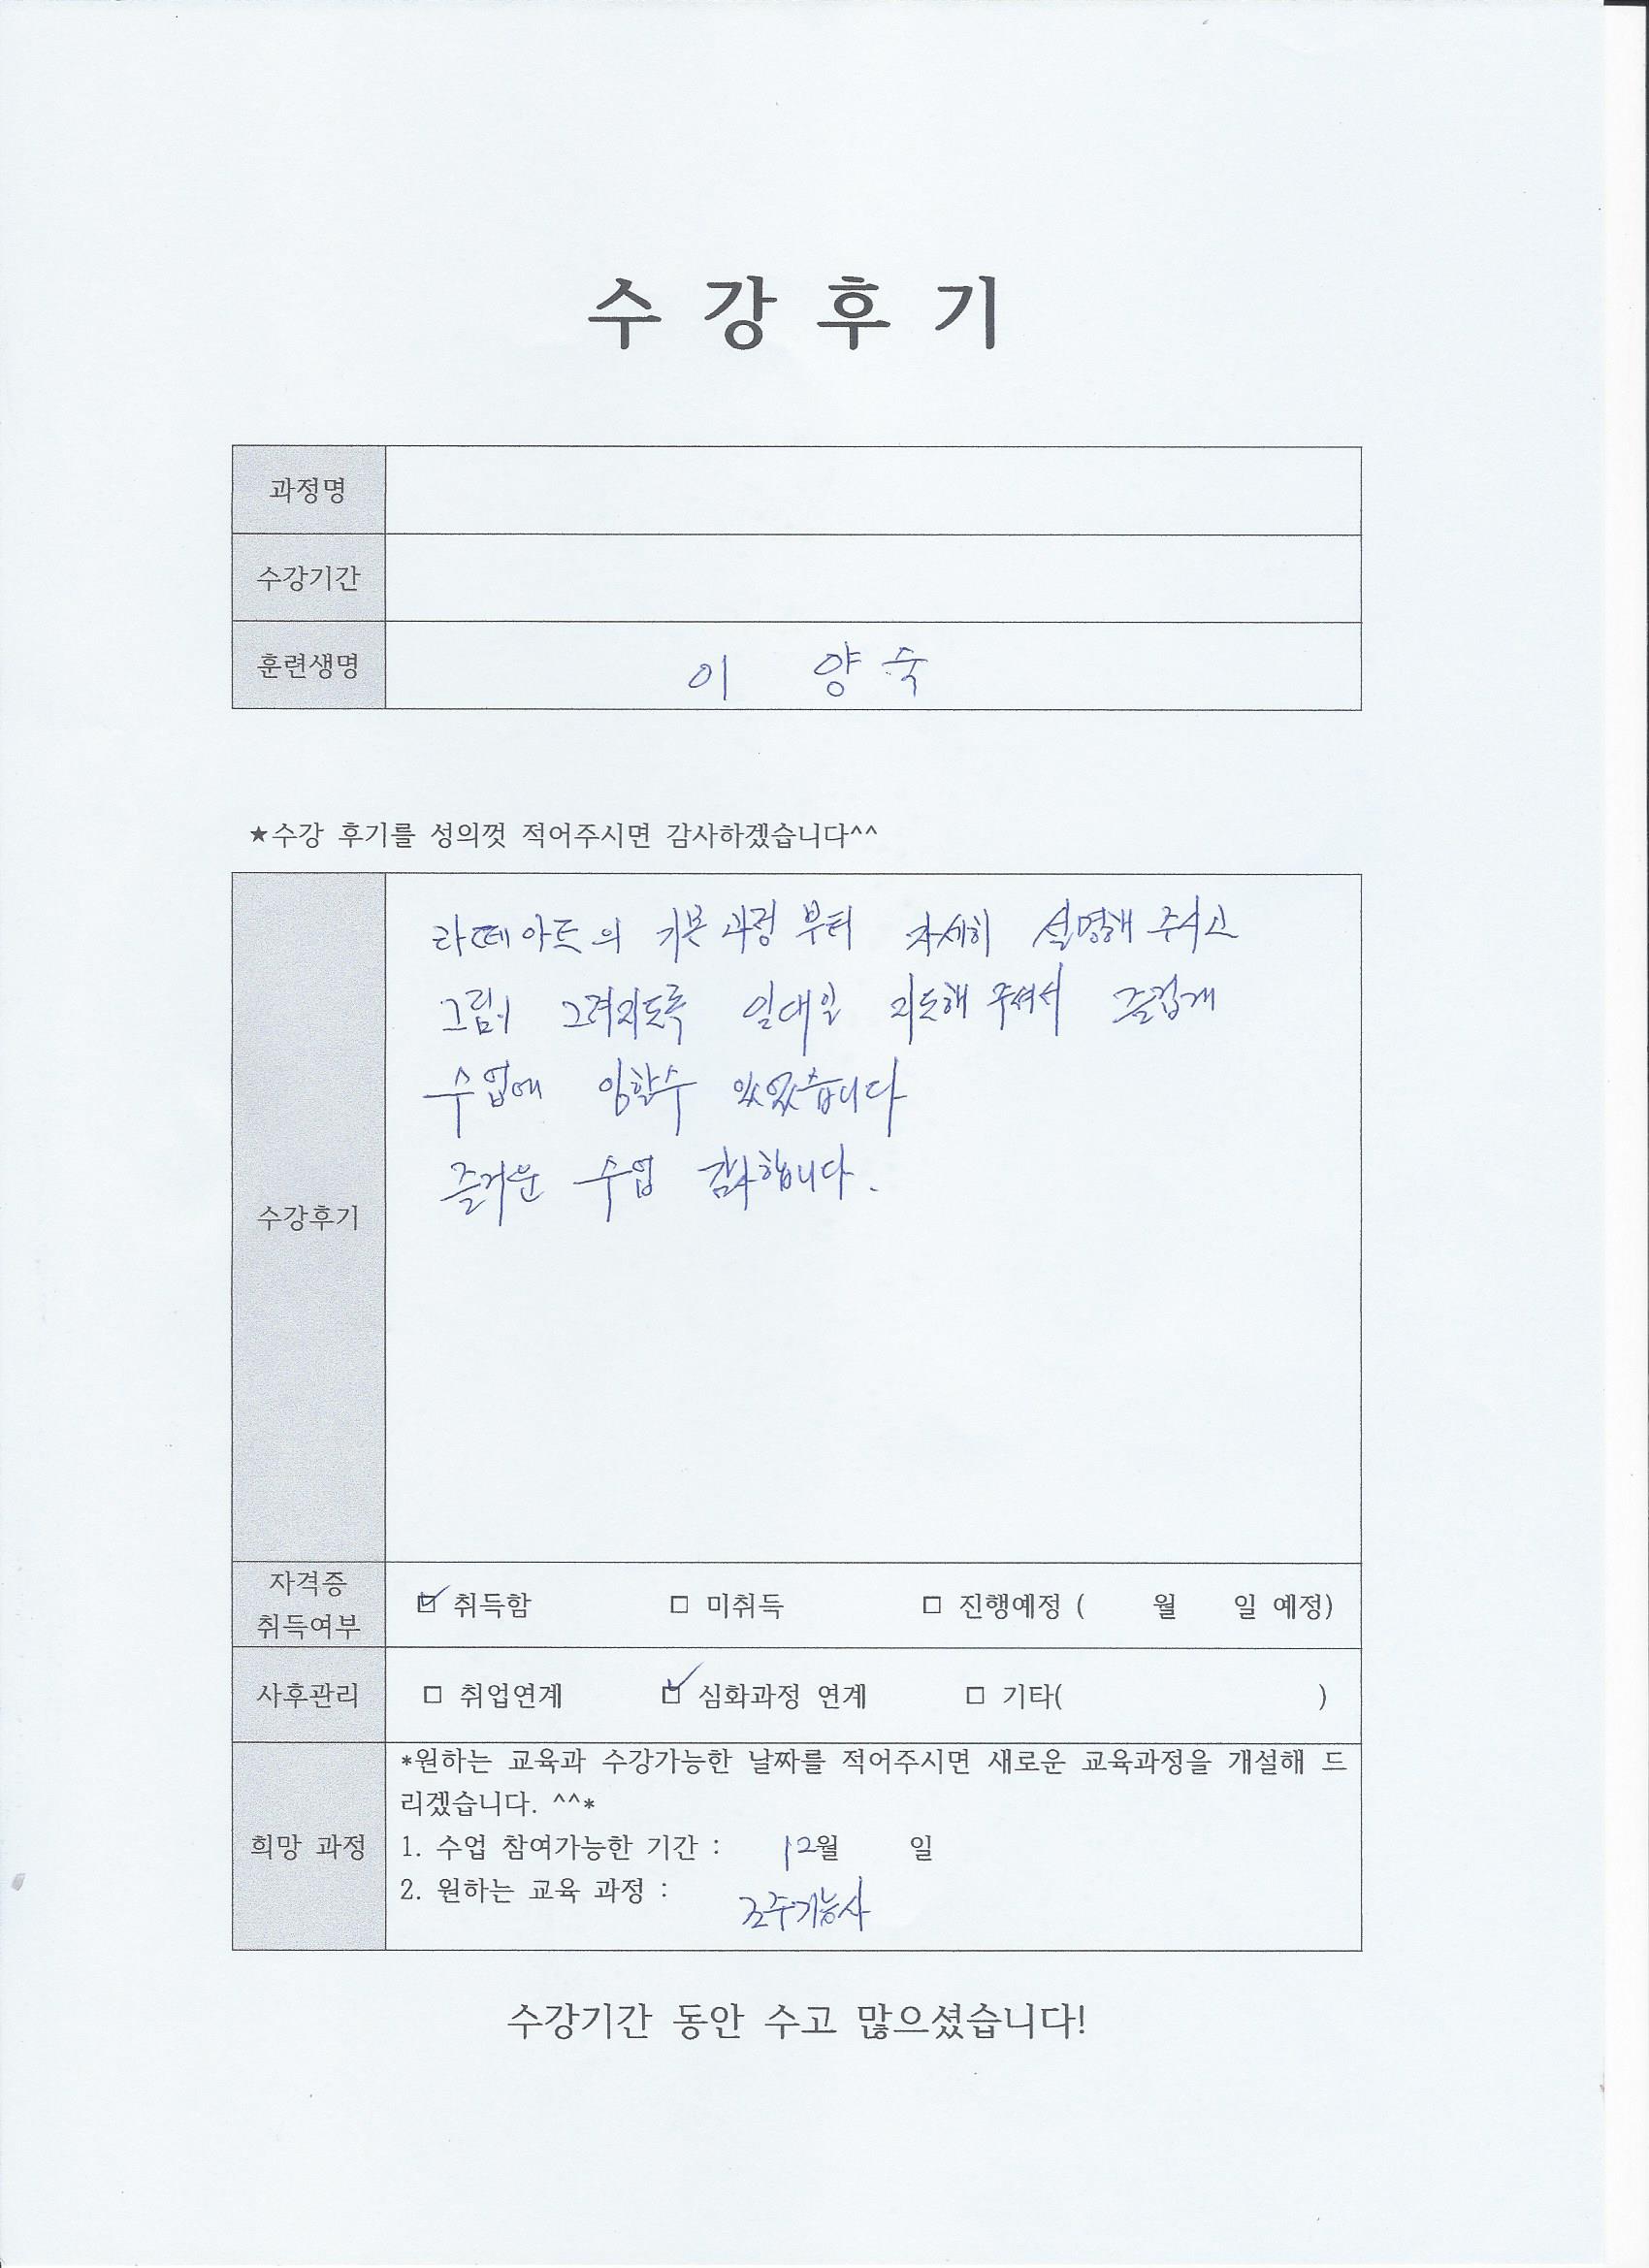 수 강 후 기
과정명
수강기간
훈련생명 이 양숙
★수강 후기를 성의껏 적어주시면 감사하겠습니다^^
수강후기
라떼아트의 기본과정 부터 자세히 설명해 주시고
그림이 그려지도록 일대일 지도해 주셔서 즐겁게
수업에 임할수 있었습니다
즐거운 수업 감사합니다.
자격증
취득여부
☑ 취득함 □ 미취득 □ 진행예정 ( 월 일 예정)
사후관리 □ 취업연계 ☑ 심화과정 연계 □ 기타( )
희망 과정
*원하는 교육과 수강가능한 날짜를 적어주시면 새로운 교육과정을 개설해 드
리겠습니다. ^^*
1. 수업 참여가능한 기간 : 12월 일
2. 원하는 교육 과정 : 조주기능사
수강기간 동안 수고 많으셨습니다!